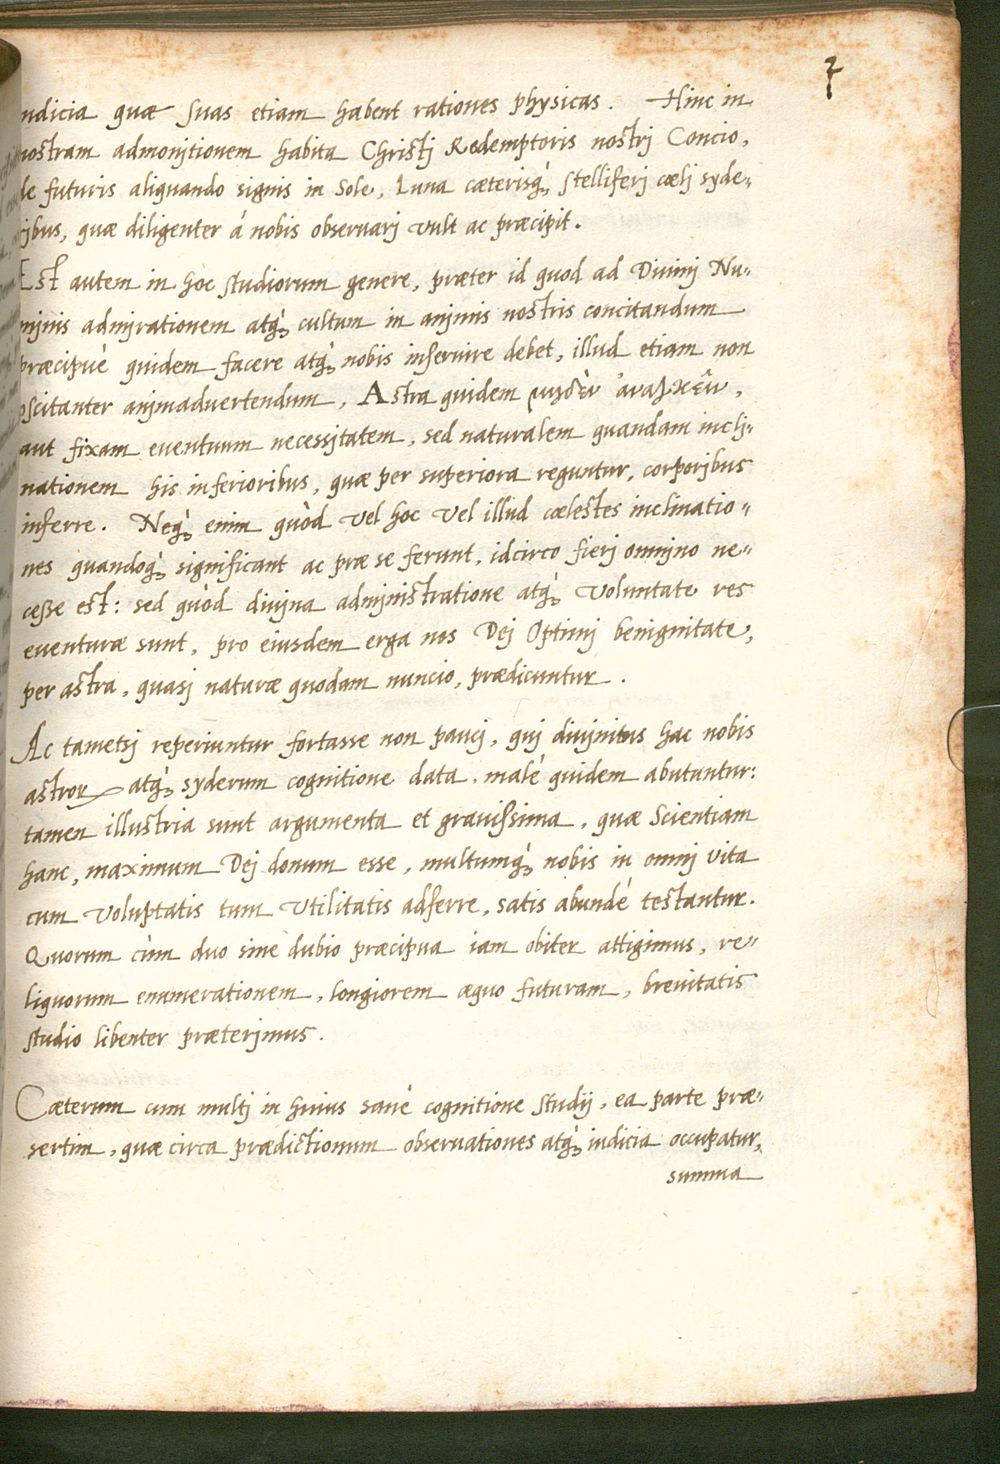 7
ndicia quæ suas etiam habent rationes physicas. Hinc in
nostram admonitionem habita Christj Redemptoris nostrj Concio,
de futuris aliquando signis in Sole, Luna cæterisq́ꝫ stelliferj cælj syde⸗
ribus, quæ diligenter á nobis obseruarj vult ac præcipit.
Est autem in hoc studiorum genere, præter id quod ad Divinj Nu⸗
minis admirationem atq́ꝫ cultum in animis nostris concitandum
præcipuè quidem facere atq́ꝫ nobis inseruire debet, illud etiam non
oscitanter animadvertendum, Astra quidem μηδὲν ἀναγκεῖν,
aut fixam eventuum necessitatem, sed naturalem quandam inclj⸗
nationem his inferioribus, quæ per superiora reguntur, corporibus
inferre. Neq́ꝫ enim quòd vel hoc vel illud cælestes inclinatio⸗
nes quandoq́ꝫ significant ac præ se ferunt, idcirco fierj omnino ne⸗
cesse est: sed quòd divina administratione atq́ꝫ voluntate res
eventuræ sunt, pro eiusdem erga nos Dej Optimj benignitate,
per astra, quasj naturæ quodam nuncio, prædicuntur.
Ac tametsj reperiuntur fortasse non paucj, quj divinitus hac nobis
astroꝝ atq́ꝫ syderum cognitione data, malé quidem abutantur:
tamen illustria sunt argumenta et grauissima, quæ Scientiam
hanc, maximum Dej donum esse, multumq́ꝫ nobis in omnj vita
cum voluptatis tum utilitatis adferre, satis abundé testantur.
Quorum cùm duo sine dubio præcipua iam obiter attigimus, re⸗
liquorum enumerationem, longiorem æquo futuram, brevitatis
studio libenter præterimus.
Cæterum cum multj in huius sanè cognitione studij, ea parte præ⸗
sertim, quæ circa prædictionum observationes atq́ꝫ iudicia occupatur,
summa